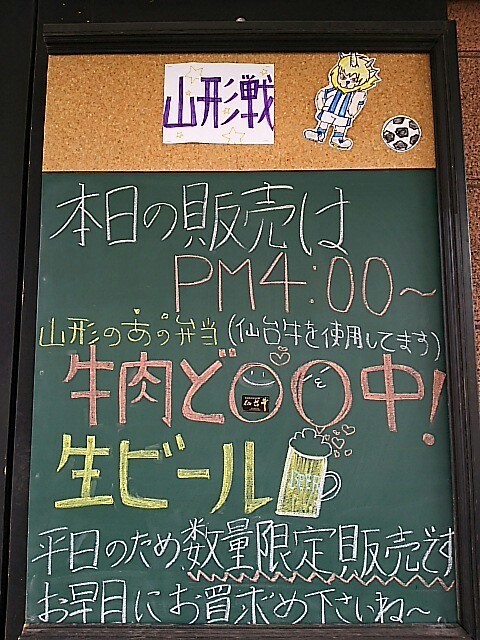 山形戦
本日の販売は
PM4:00~
山形のあの弁当(仙台牛を使用してます)
牛肉ど○○中!
仙台牛
生ビール
BEER
平日のため数量限定販売です
お早目にお買求め下さいね~